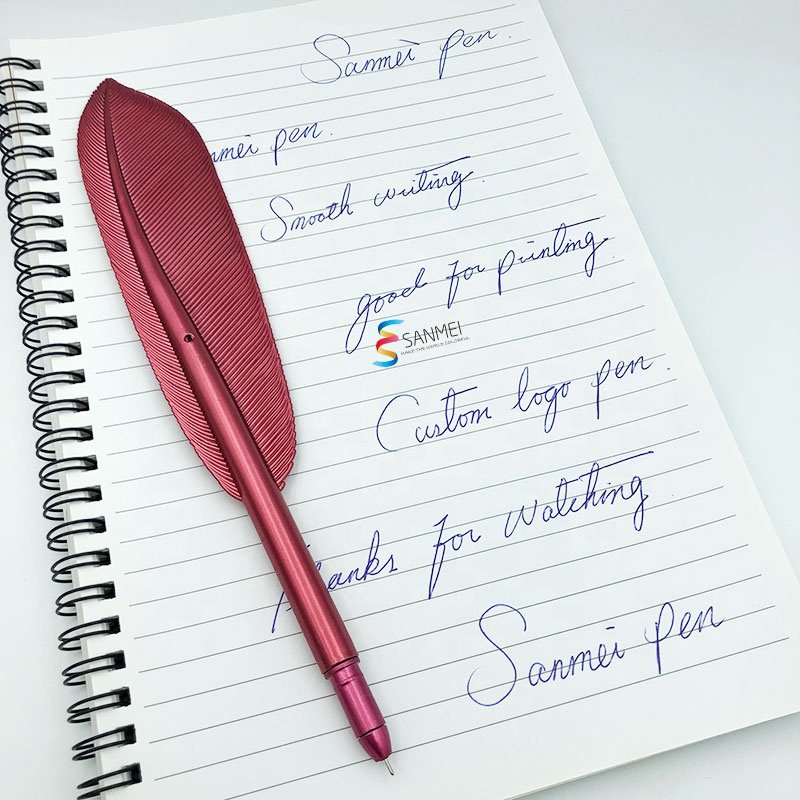 Sanmei pen.
nmei pen.
Smooth writing.
good for printing.
SANMEI
MAKE THE WORLD COLORFUL
Custom logo pen.
thanks for watching
Sanmei pen